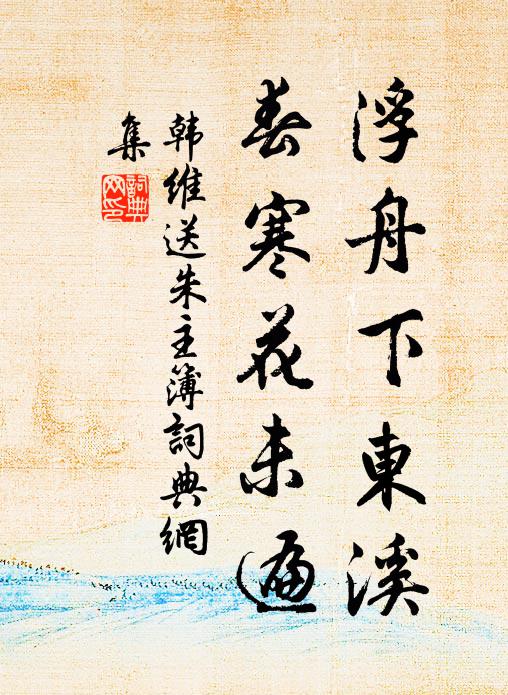 浮舟下東溪
春寒花未遍
韩維送朱主簿詞典網
集
詞典
网印